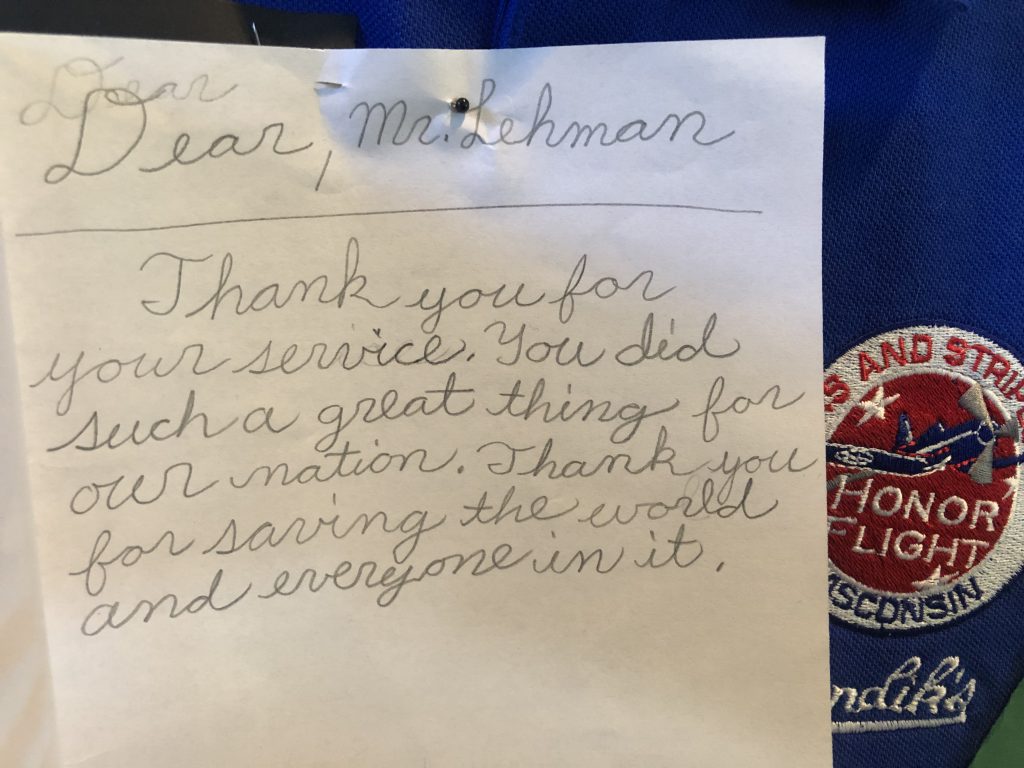 Dear
Dear, Mr. Lehman
Thank you for
your service. You did
such a great thing for
our nation. Thank you
for saving the world
and everyone in it.
S AND STRI
HONOR
FLIGHT
ISCONSIN
ndik's